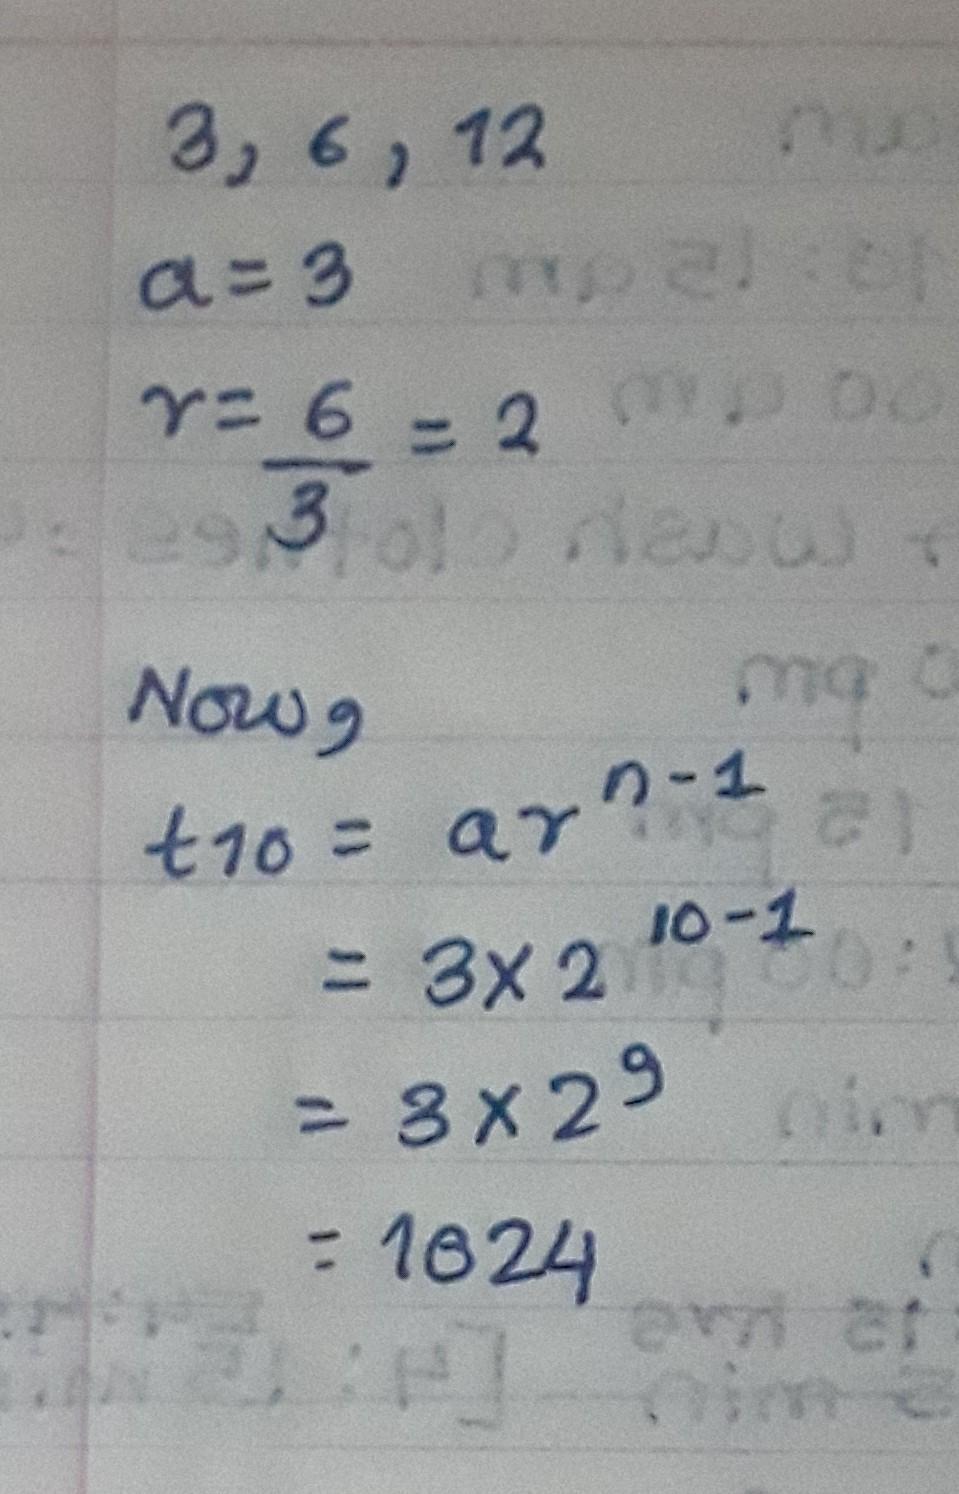 3, 6, 12
a = 3
r = 6/3 = 2
Now,
t10 = ar^n-1
= 3 x 2^10-1
= 3 x 2^9
= 1024